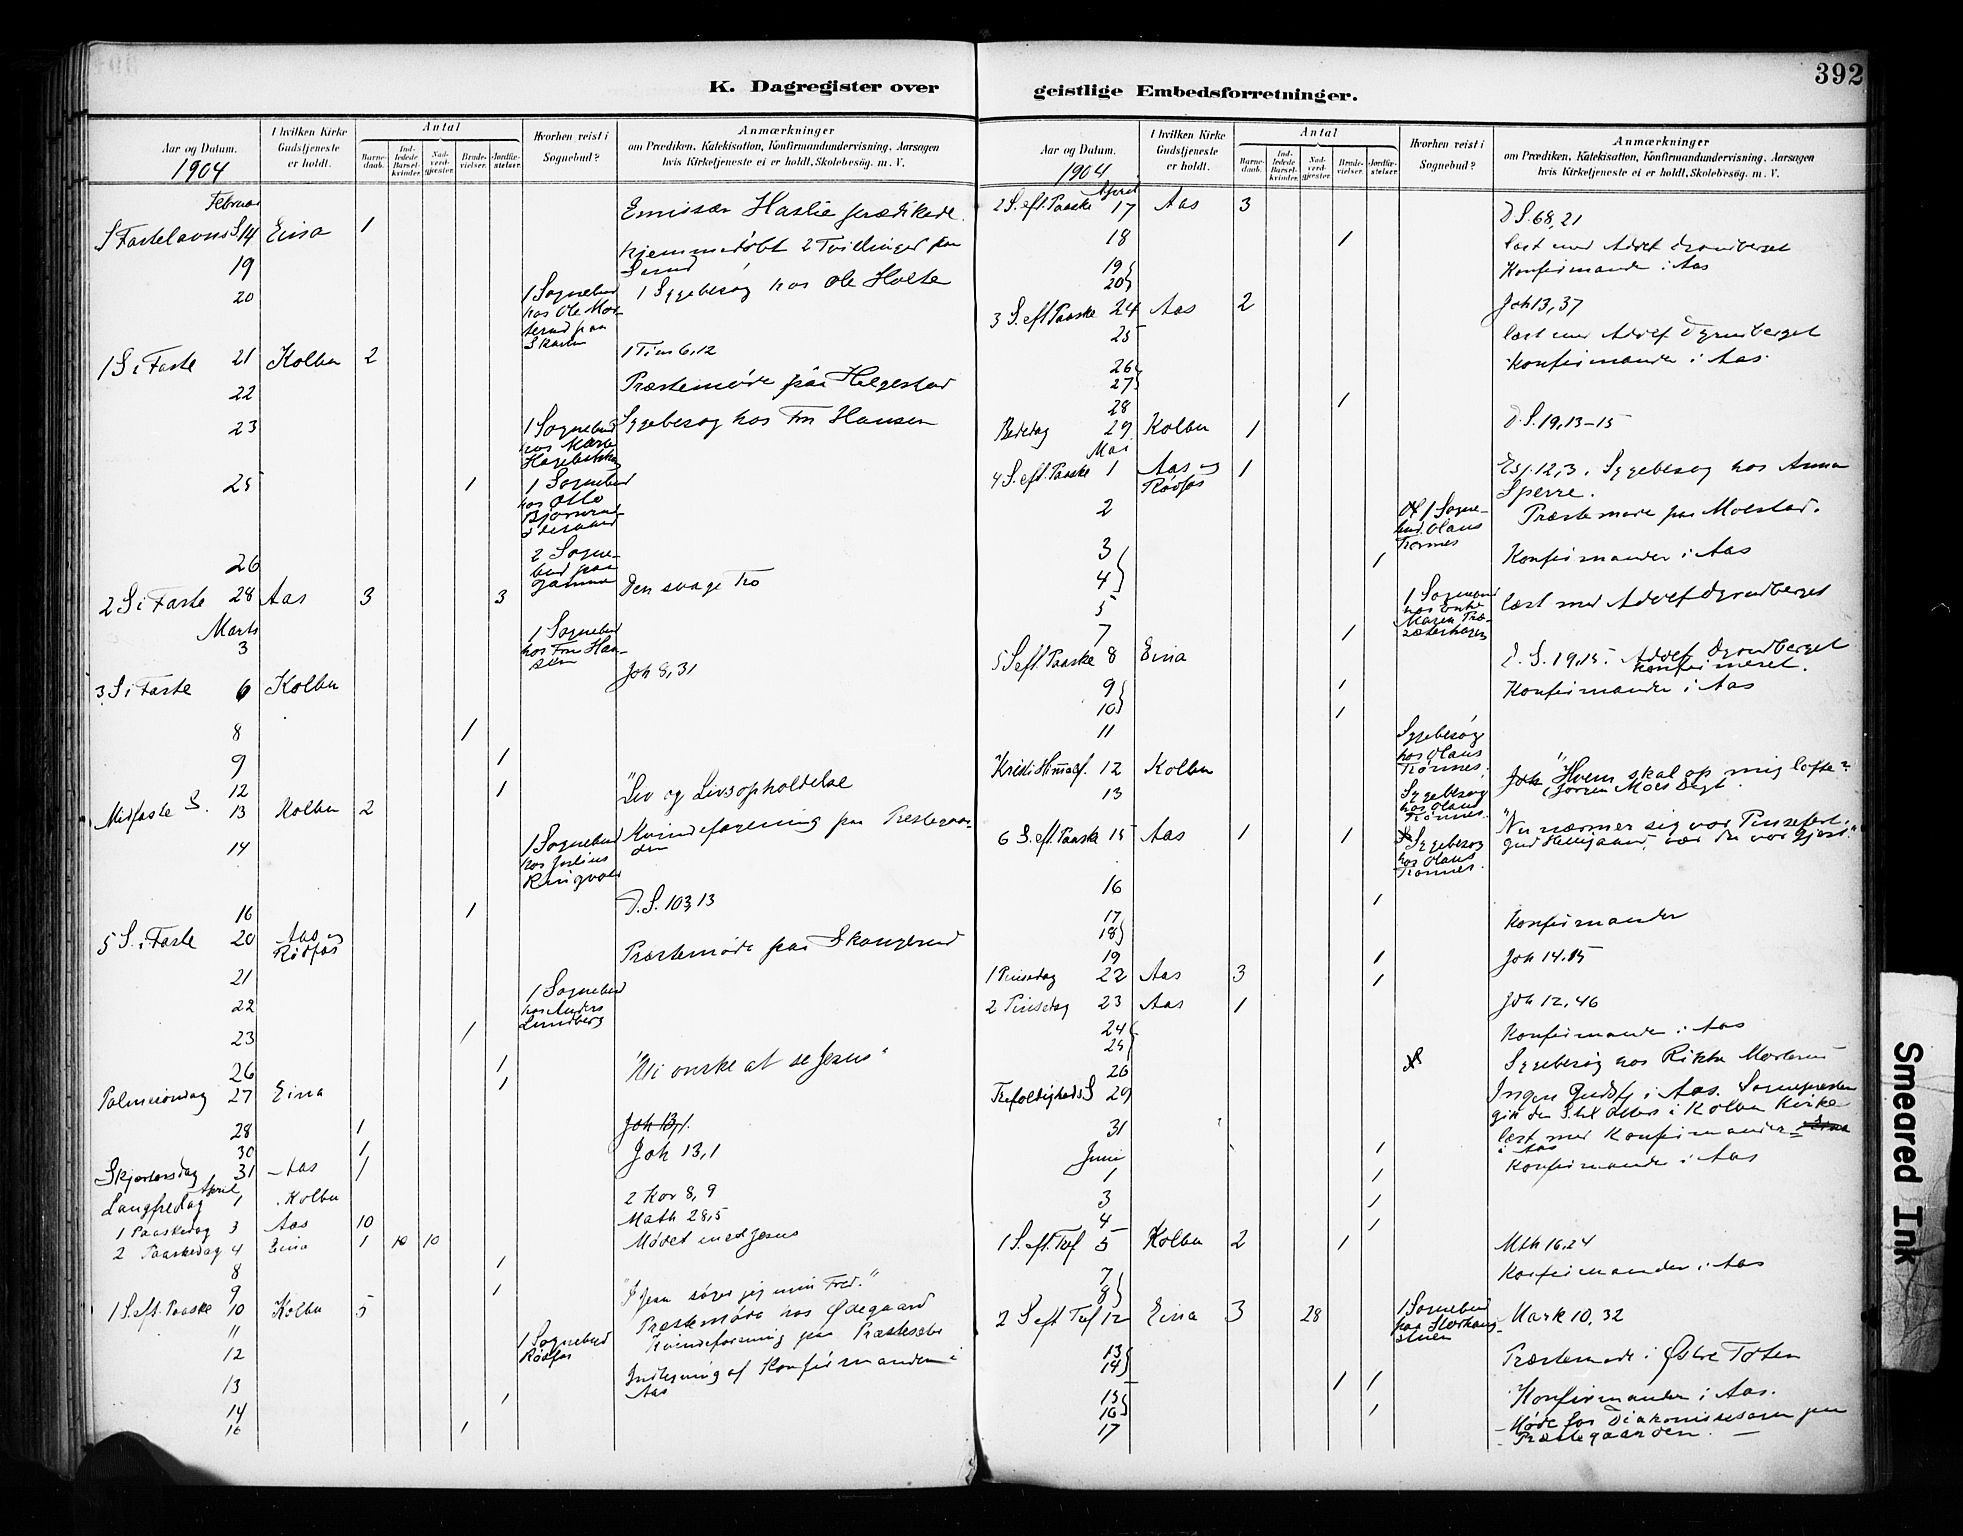 392
K. Dagregister over
Aar og Datum.
1904
I hvilken Kirke Gudstjeneste er holdt.
Antal
Barnedaab.
Indledede Barselkvinder.
Nadverdgjester
Brudevielser.
Jordfæstelser.
Hvorhen reist i Sognebud?
Anmærkninger
om Prædiken, Katekisation, Konfirmandundervisning, Aarsagen
hvis Kirketjeneste ei er holdt, Skolebesøg. m. V.
Februar
S Fastelavns S 14 Eina 1 Emissær Haslie prædikede.
19 hjemmedøbt 2 Tvillinger paa
20 1 Sognebud 1 Sygebesøg hos Ole Holte
hos Ole
1 S i Faste 21 Kolbu 2 1 Tim 6,12
22 Præstemøde paa Helgestad
23 1 Sognebud Sygebesøg hos Fru Hansen
25 1 1 Sognebud
hos Otto
26 2 Sogne-
bud paa
2 S i Faste 28 Aas 3 3 Den svage Tro
Marts
3 1 Sognebud
hos Fru Han-
sen
3 S i Faste 6 Kolbu Joh 8,31
8 1
9 1
12 1
Midfaste S. 13 Kolbu 2 "Liv og Livsopholdelse
14 1 Sognebud Kvindeforening paa Prestegaar-
hos Julius den
Ringvold
16 1
5 S. i Faste 20 Aas og D.S. 103,13
Rødfos
21 Præstemøde paa Skaugerud
22 1 Sognebud
hos Anders
Lundberg
23 1
26 1
Palmesøndag 27 Eina 1 "Vi ønske at se Jesus"
28 1
30 1 Joh 13,1.
Skjærtorsdag 31 Aas 1 Joh 13,1
April
Langfredag 1 Kolbu 2 Kor 8,9
1 Paaskedag 3 Aas 10 Math 28,5
2 Paaskedag 4 Eina 1 10 10 Mødet med Jesus
8 1
9 1
1 S. eft. Paaske 10 Kolbu 5 "I Jesu søger jeg min Fred."
11 Præstemøde hos Ødegaard
12 1 Sognebud Kvindeforening paa
Rødfos
13 Indlesning af Konfirmanderne i
Aas
14 1
16 1
geistlige Embedsforretninger.
Aar og Datum.
1904
I hvilken Kirke Gudstjeneste er holdt.
Antal
Barnedaab.
Indledede Barselkvinder.
Nadverdgjester
Brudevielser.
Jordfæstelser.
Hvorhen reist i Sognebud?
Anmærkninger
om Prædiken, Katekisation, Konfirmandundervisning, Aarsagen
hvis Kirketjeneste ei er holdt, Skolebesøg. m. V.
April
2 S. eft. Paaske 17 Aas 3 D.S. 68,21
18 1 læst med Adolf
19
20 Konfirmander i Aas
3 S. eft Paaske 24 Aas 2 Joh 13,37
25 læst med Adolf
26
27 Konfirmander i Aas.
28 1
Bededag 29 Kolbu 1 D.S. 19,13-15
Mai
4 S. eft. Paaske 1 Aas og 1 Esj. 12,3. Sygebesøg hos Anna
Rødfos Sperre.
2 1 Sogne- Præstemøde paa Molstad.
bud. Olaus
3
4 1 Konfirmander i Aas
5 1 Sognebud læst med Adolf
hos Enke
7 1
5 S eft. Paaske 8 Eina D.S. 19,15. Adolf
konfirmeret.
9 1
10 1 Konfirmander i Aas
11 Sygebesøg
hos Olaus
Kristi Himmelf. 12 Kolbu Joh "Hvem skal op mig løfte"
13 Sygebesøg Jørgen Moes Digt.
hos Olaus
6 S. eft. Paaske 15 Aas 1 1 Sygebesøg "Nu nærmer sig vor Pinsefest,
hos Olaus
16 1
17
18 Konfirmander
19 1
1 Pinsedag 22 Aas 3 1 Joh 14.15
2 Pinsedag 23 Aas 1 Joh 12,46
24
25 Konfirmander i Aas
26 Sygebesøg hos Rikka
Trefoldigheds S 29 Ingen Gudstj i Aas. Sognepresten
gik til Alters i Kolbu Kirke
31 læst med Konfirmander
i Aas
Juni
1 1 Konfirmander i Aas
3 1
4 1
1 S. eft. Tref 5 Kolbu 2 1 Mth 16,24
7
8 Konfirmander i Aas
2 S eft Tref 12 Eina 3 28 1 Sognebud Mark 10,32
13
14 Præstemøde i Østre Toten
15 1 1
16 1 Konfirmander i Aas.
17 Møde for Diakonissesagen paa
Præstegaarden.
Smeared Ink